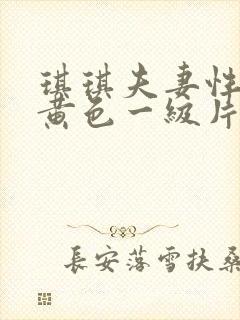 琪琪夫妻性
黄色一级片
長安落雪扶桑